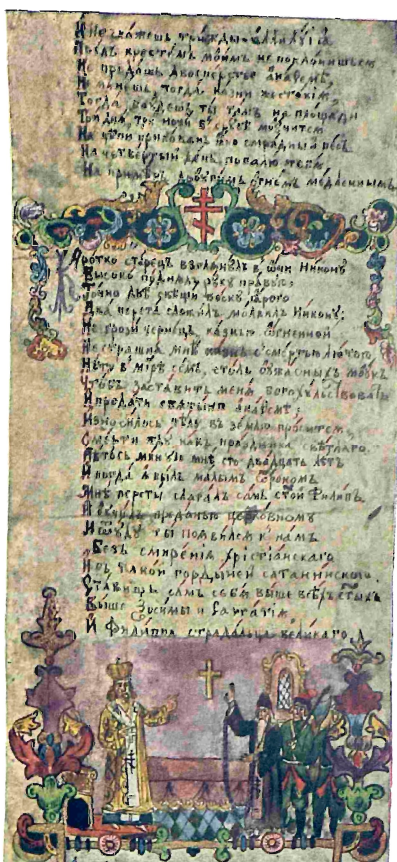 И не скажешь трижды аллилуія
Предъ крестомъ моимъ не поклонишься
Не предашь двоеперстье анафемѣ,
тогда казни жестокія,
Тогда ты тамъ не прощади
Три дня, три ночи
На цѣпи прикованъ смрадный песъ
На четвертый день тебя
На огнемъ медленнымъ
Кротко старецъ взглянулъ в очи Никону
Высоко поднялъ руку правую;
Точно двѣ свѣщи воску яраго
Два перста сложилъ молвилъ Никону:
Не грози чернецъ казнью огненной
Не страшна мнѣ казнь смертью лютою
Нѣтъ в мірѣ семъ, столь ужасныхъ мукъ
Чтобъ заставить меня богохульствовать
И предати святыню анафемѣ;
Износилось тѣло въ землю просится,
Смерти жду какъ праздника свѣтлаго,
мнѣ сто двадцать лѣтъ
И когда я былъ малымъ
Мнѣ персты слагалъ самъ стой Филипъ,
И училъ преданью церковному
И ты появился к намъ
Безъ смиренія христіанскаго
Но с такой гордыней сатанинскою
Ставишь самъ себя выше всѣхъ стыхъ
Выше Зосимы и Савватія
И Филиппа страдальца великаго,